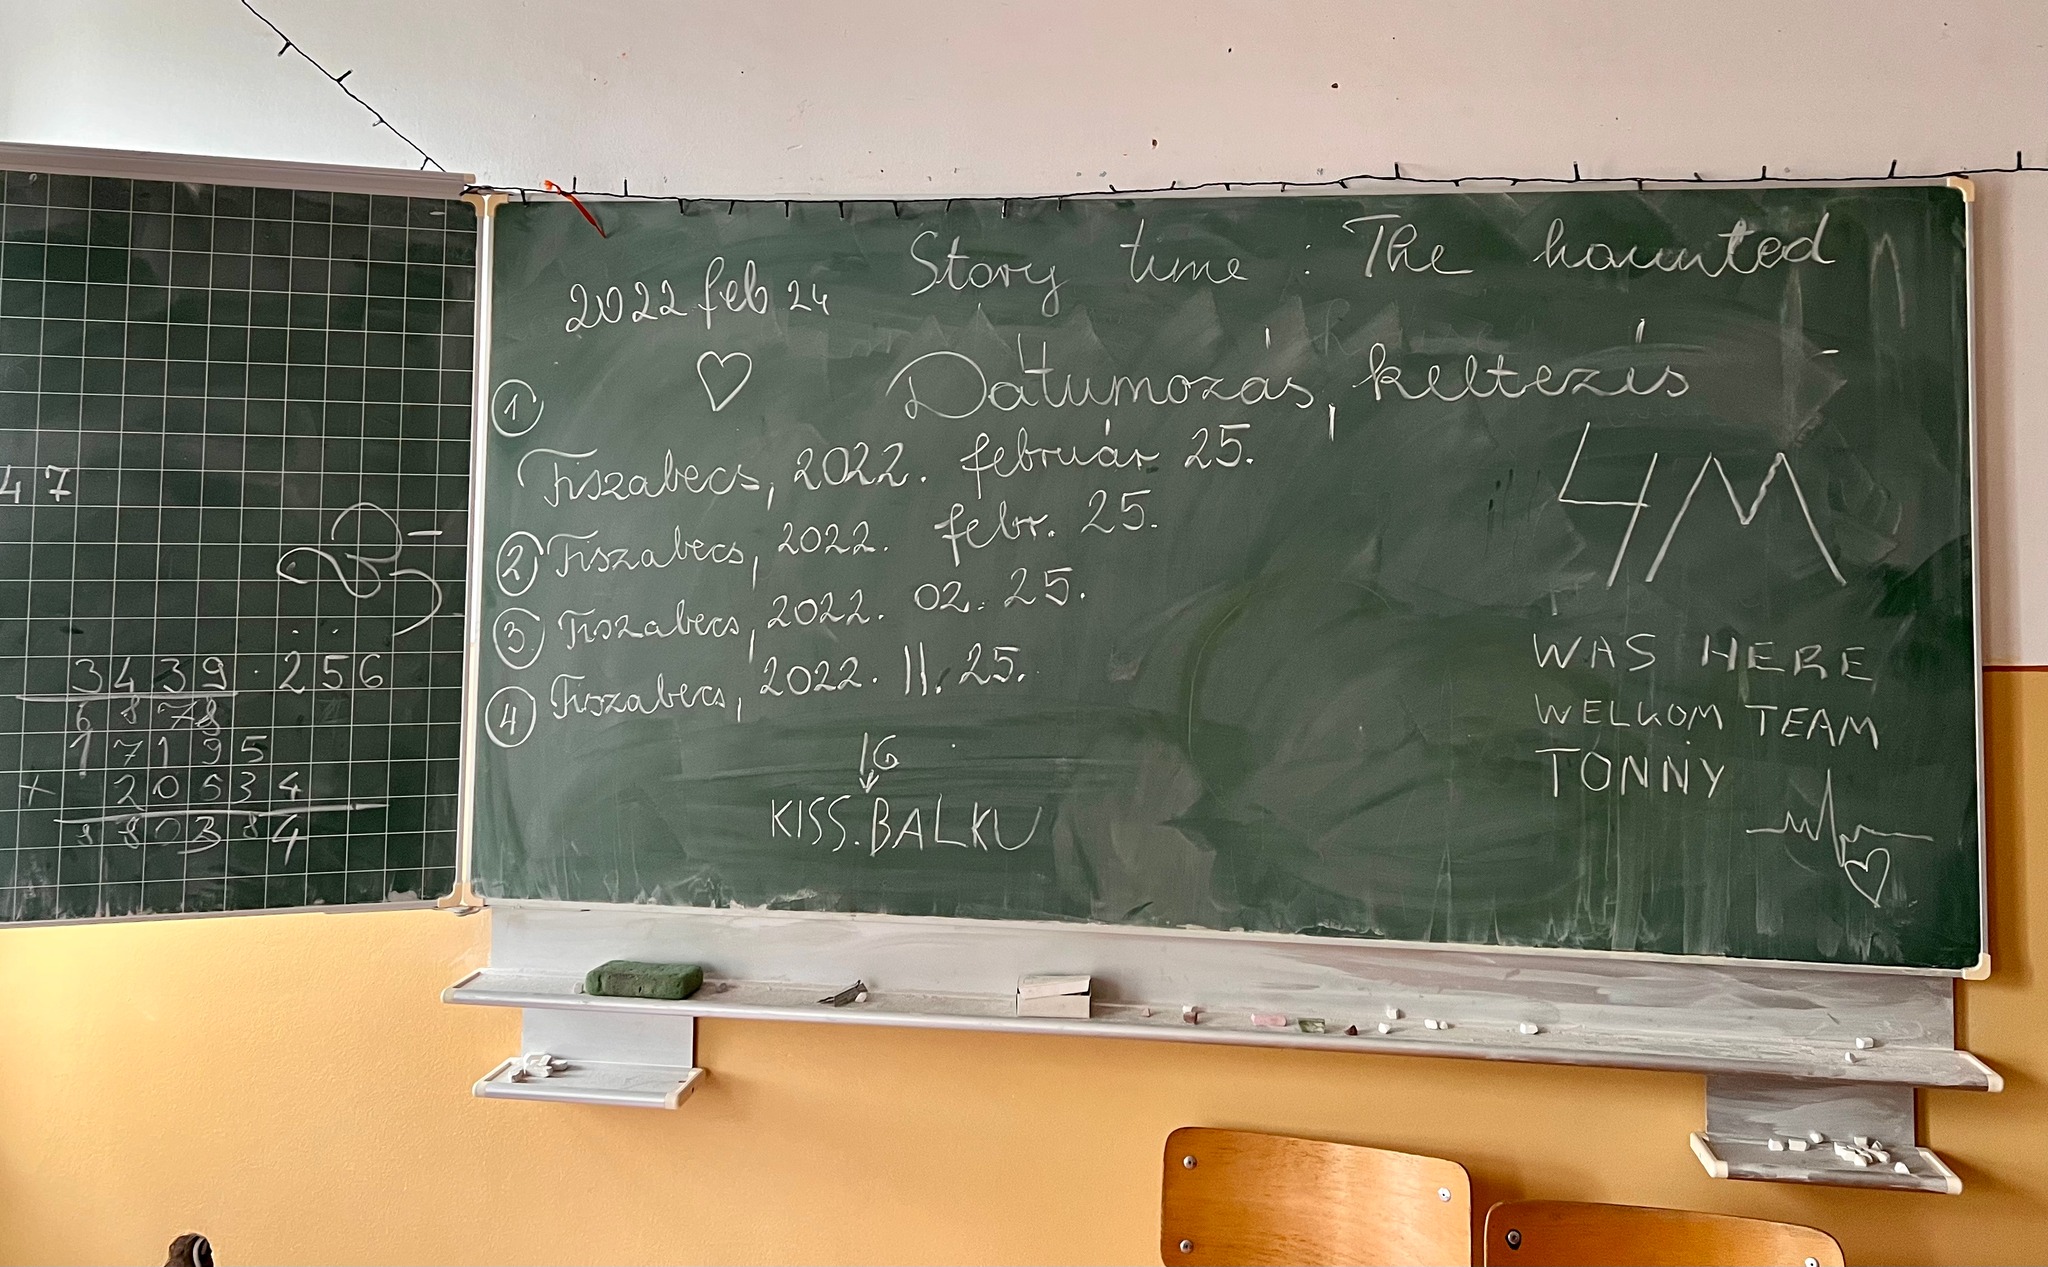 47
3439 · 256
6878
17195
+ 20634
880384
Story time : The haunted
2022 feb 24
Dátumozás, keltezés
①
Tiszabecs, 2022. február 25.
② Tiszabecs, 2022. febr. 25.
③ Tiszabecs, 2022. 02. 25.
④ Tiszabecs, 2022. II. 25.
IG
KISS.BALKU
4M
WAS HERE
WELKOM TEAM
TONNY